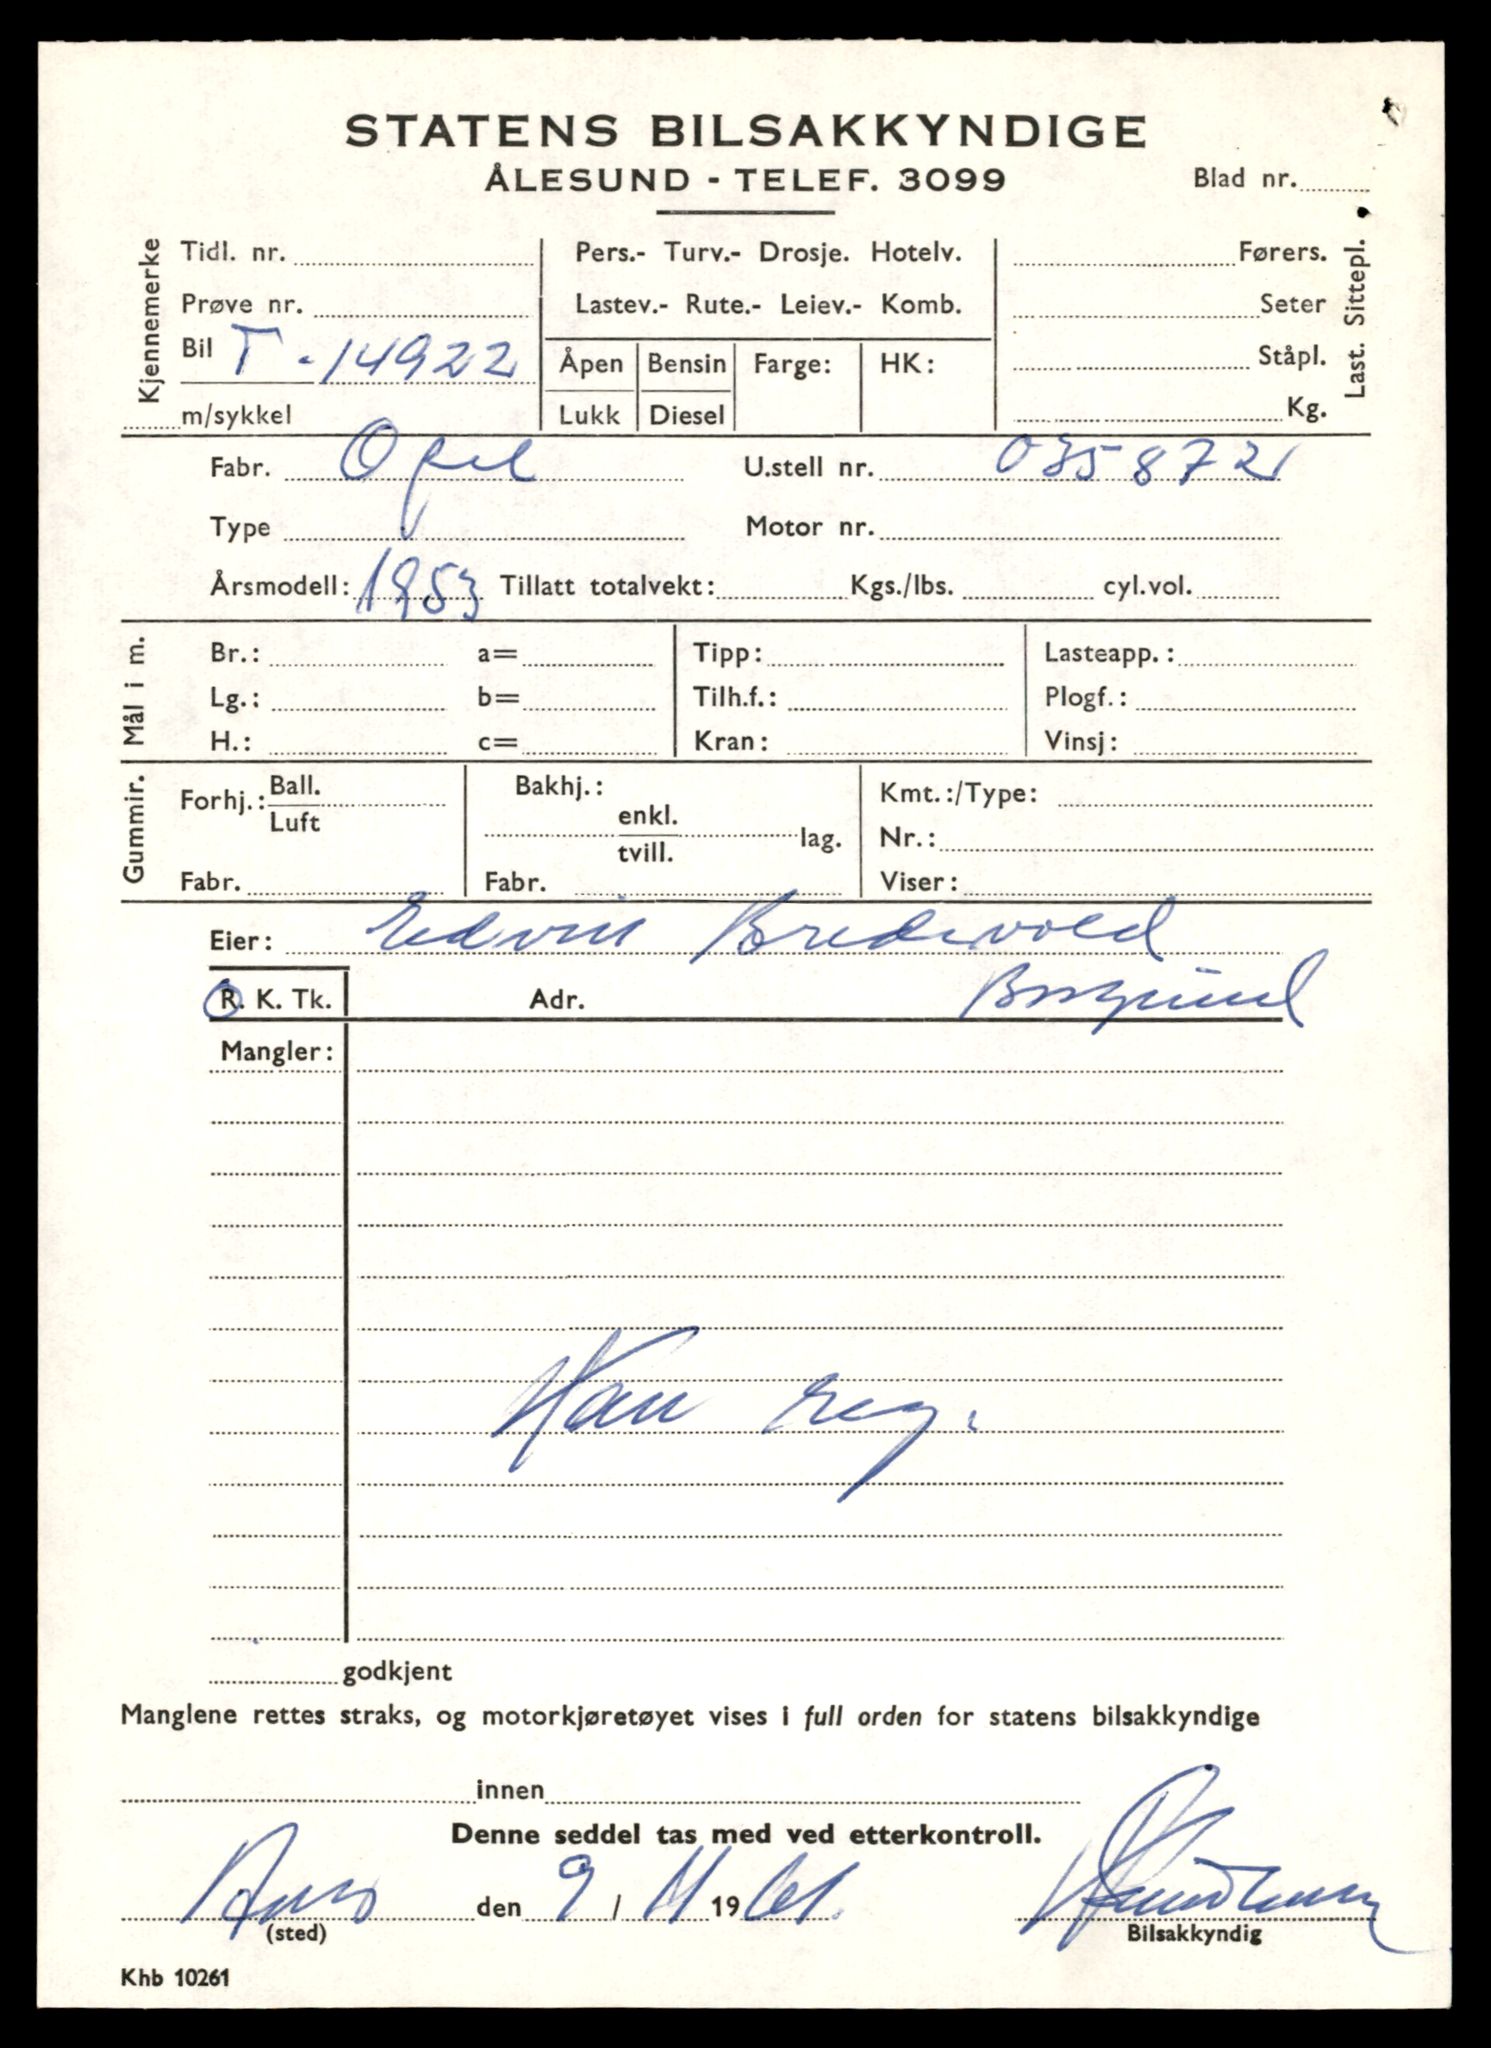 STATENS BILSAKKYNDIGE
ÅLESUND - TELEF. 3099
Blad nr.
Kjennemerke
Tidl. nr.
Prøve nr.
Bil T - 14922
m/sykkel
Pers.- Turv.- Drosje. Hotelv.
Lastev.- Rute.- Leiev.- Komb.
Åpen Bensin Farge: HK:
Lukk Diesel
Førers.
Seter
Ståpl.
Kg.
Last. Sittepl.
Fabr. Opel U.stell nr. 035872
Type Motor nr.
Årsmodell: 1953 Tillatt totalvekt: Kgs./lbs. cyl.vol.
Mål i m.
Br.: a= Tipp: Lasteapp.:
Lg.: b= Tilh.f.: Plogf.:
H.: c= Kran: Vinsj:
Gummir.
Forhj.: Ball.
Luft
Fabr.
Bakhj.:
enkl.
tvill. lag.
Fabr.
Kmt.:/Type:
Nr.:
Viser:
Eier: Edvin Bredevold
R. K. Tk. Adr. Borgund
Mangler:
Kan reg.
godkjent
Manglene rettes straks, og motorkjøretøyet vises i full orden for statens bilsakkyndige
innen
Denne seddel tas med ved etterkontroll.
den 9 / 11 1961.
(sted)
Bilsakkyndig
Khb 10261